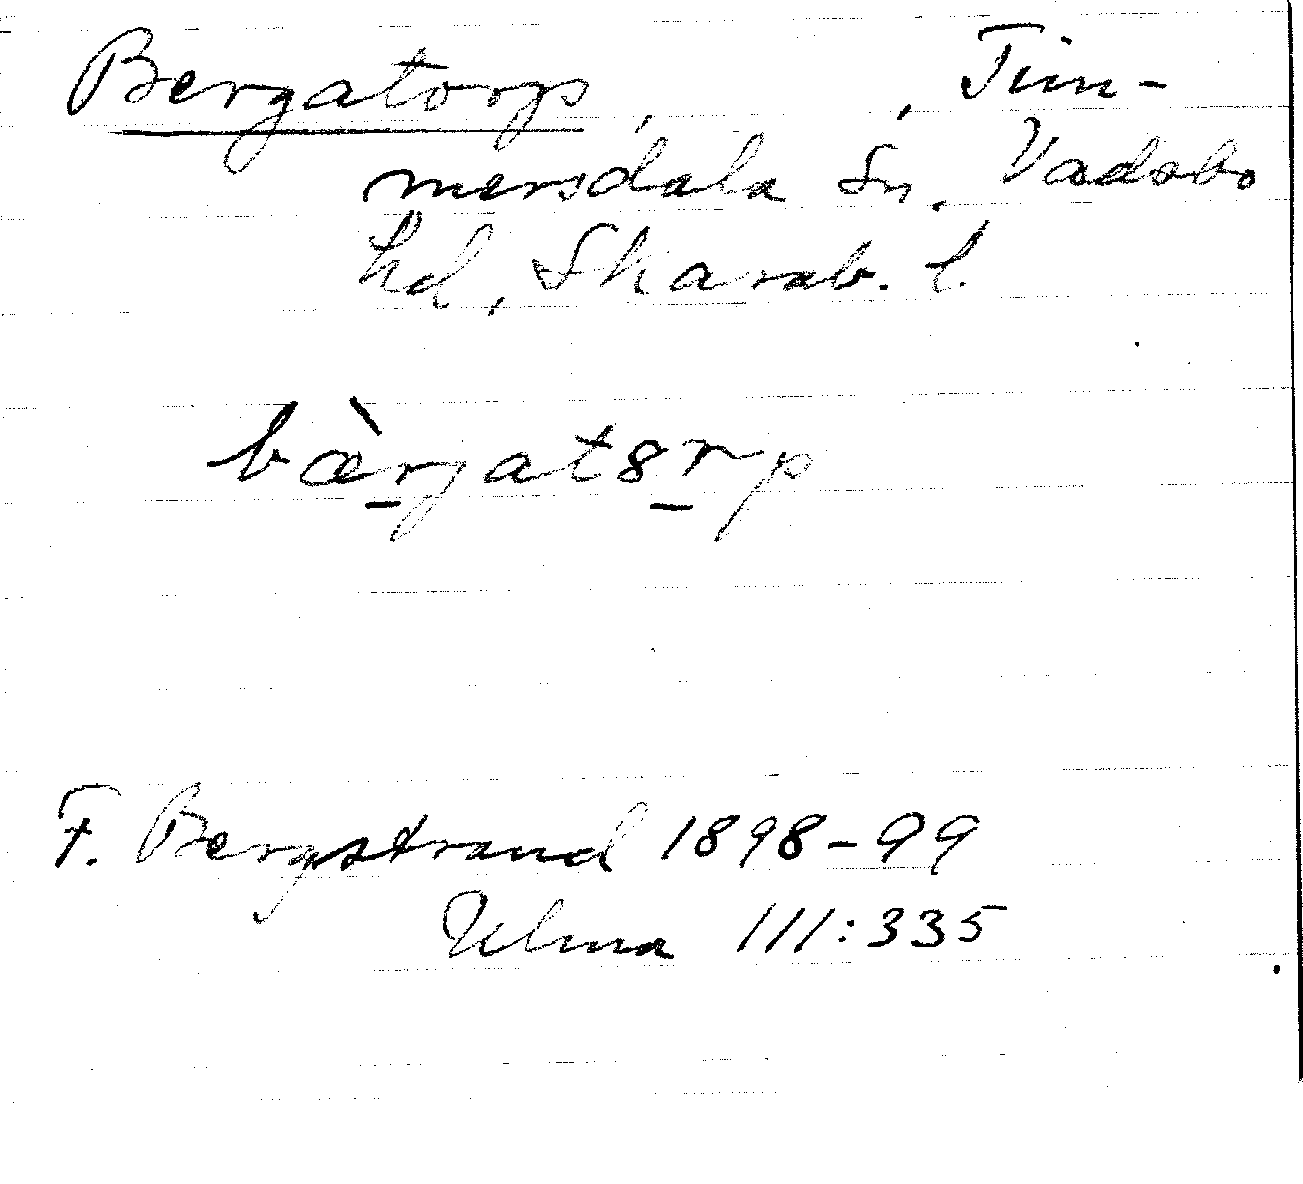 Bergatorp, , Tim-
mersdala Sn, Vadsbo
hd, Skarab. l.
bæ̀r̠jat8r̠p
F. Bergstrand 1898-99
Ulma 111:335